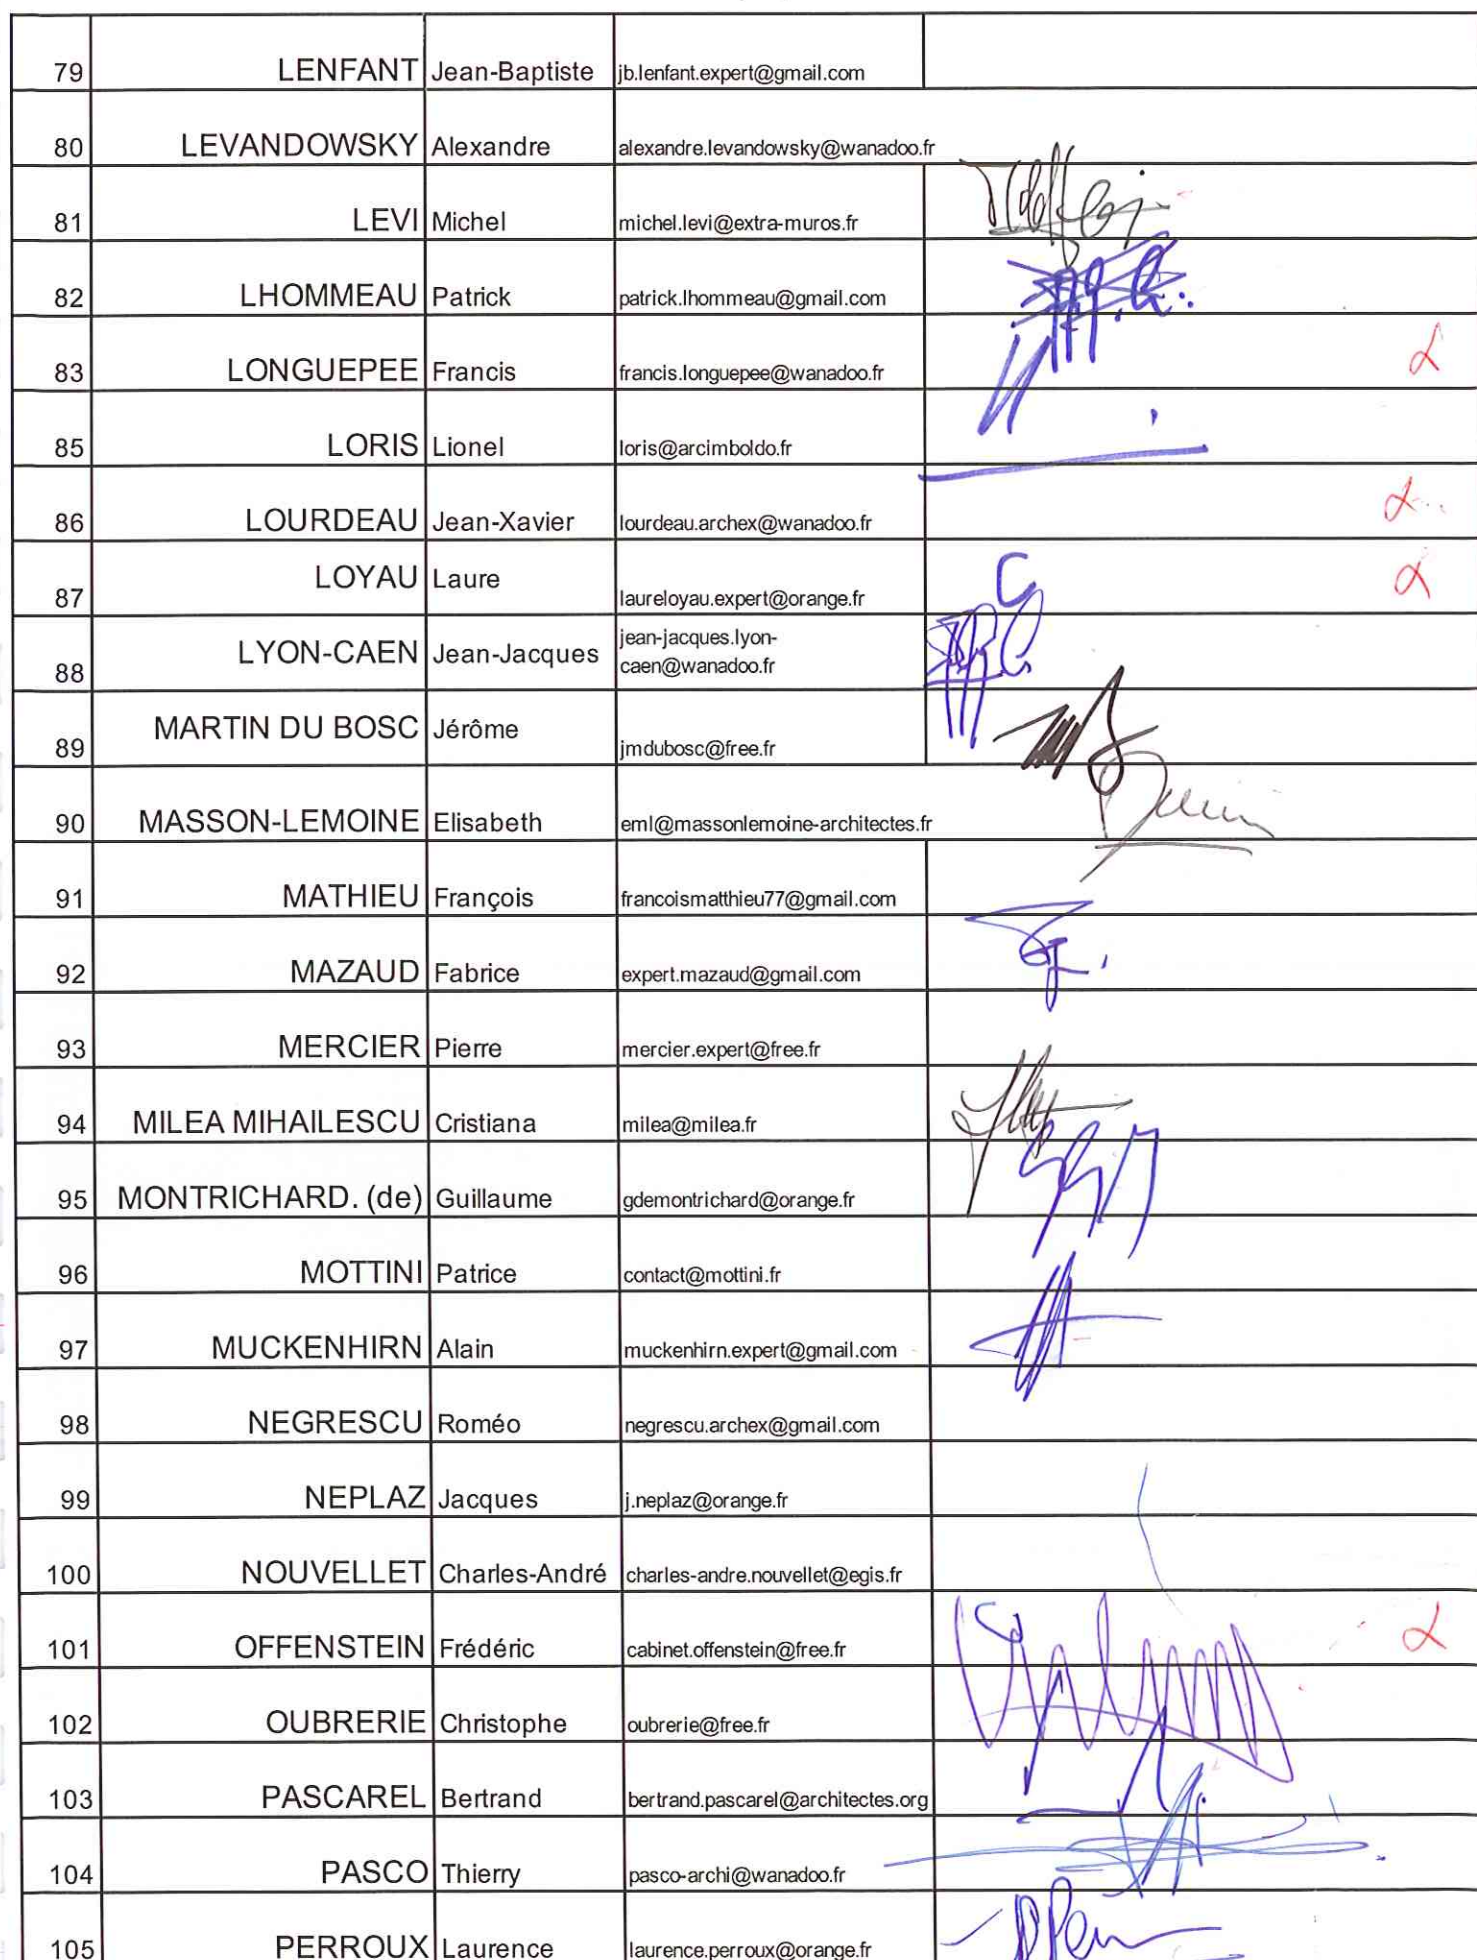 79 LENFANT Jean-Baptiste jb.lenfant.expert@gmail.com
80 LEVANDOWSKY Alexandre alexandre.levandowsky@wanadoo.fr
81 LEVI Michel michel.levi@extra-muros.fr
82 LHOMMEAU Patrick patrick.lhommeau@gmail.com
83 LONGUEPEE Francis francis.longuepee@wanadoo.fr
85 LORIS Lionel loris@arcimboldo.fr
86 LOURDEAU Jean-Xavier lourdeau.archex@wanadoo.fr
87 LOYAU Laure laureloyau.expert@orange.fr
88 LYON-CAEN Jean-Jacques jean-jacques.lyon-
caen@wanadoo.fr
89 MARTIN DU BOSC Jérôme jmdubosc@free.fr
90 MASSON-LEMOINE Elisabeth eml@massonlemoine-architectes.fr
91 MATHIEU François francoismatthieu77@gmail.com
92 MAZAUD Fabrice expert.mazaud@gmail.com
93 MERCIER Pierre mercier.expert@free.fr
94 MILEA MIHAILESCU Cristiana milea@milea.fr
95 MONTRICHARD. (de) Guillaume gdemontrichard@orange.fr
96 MOTTINI Patrice contact@mottini.fr
97 MUCKENHIRN Alain muckenhirn.expert@gmail.com
98 NEGRESCU Roméo negrescu.archex@gmail.com
99 NEPLAZ Jacques j.neplaz@orange.fr
100 NOUVELLET Charles-André charles-andre.nouvellet@egis.fr
101 OFFENSTEIN Frédéric cabinet.offenstein@free.fr
102 OUBRERIE Christophe oubrerie@free.fr
103 PASCAREL Bertrand bertrand.pascarel@architectes.org
104 PASCO Thierry pasco-archi@wanadoo.fr
105 PERROUX Laurence laurence.perroux@orange.fr